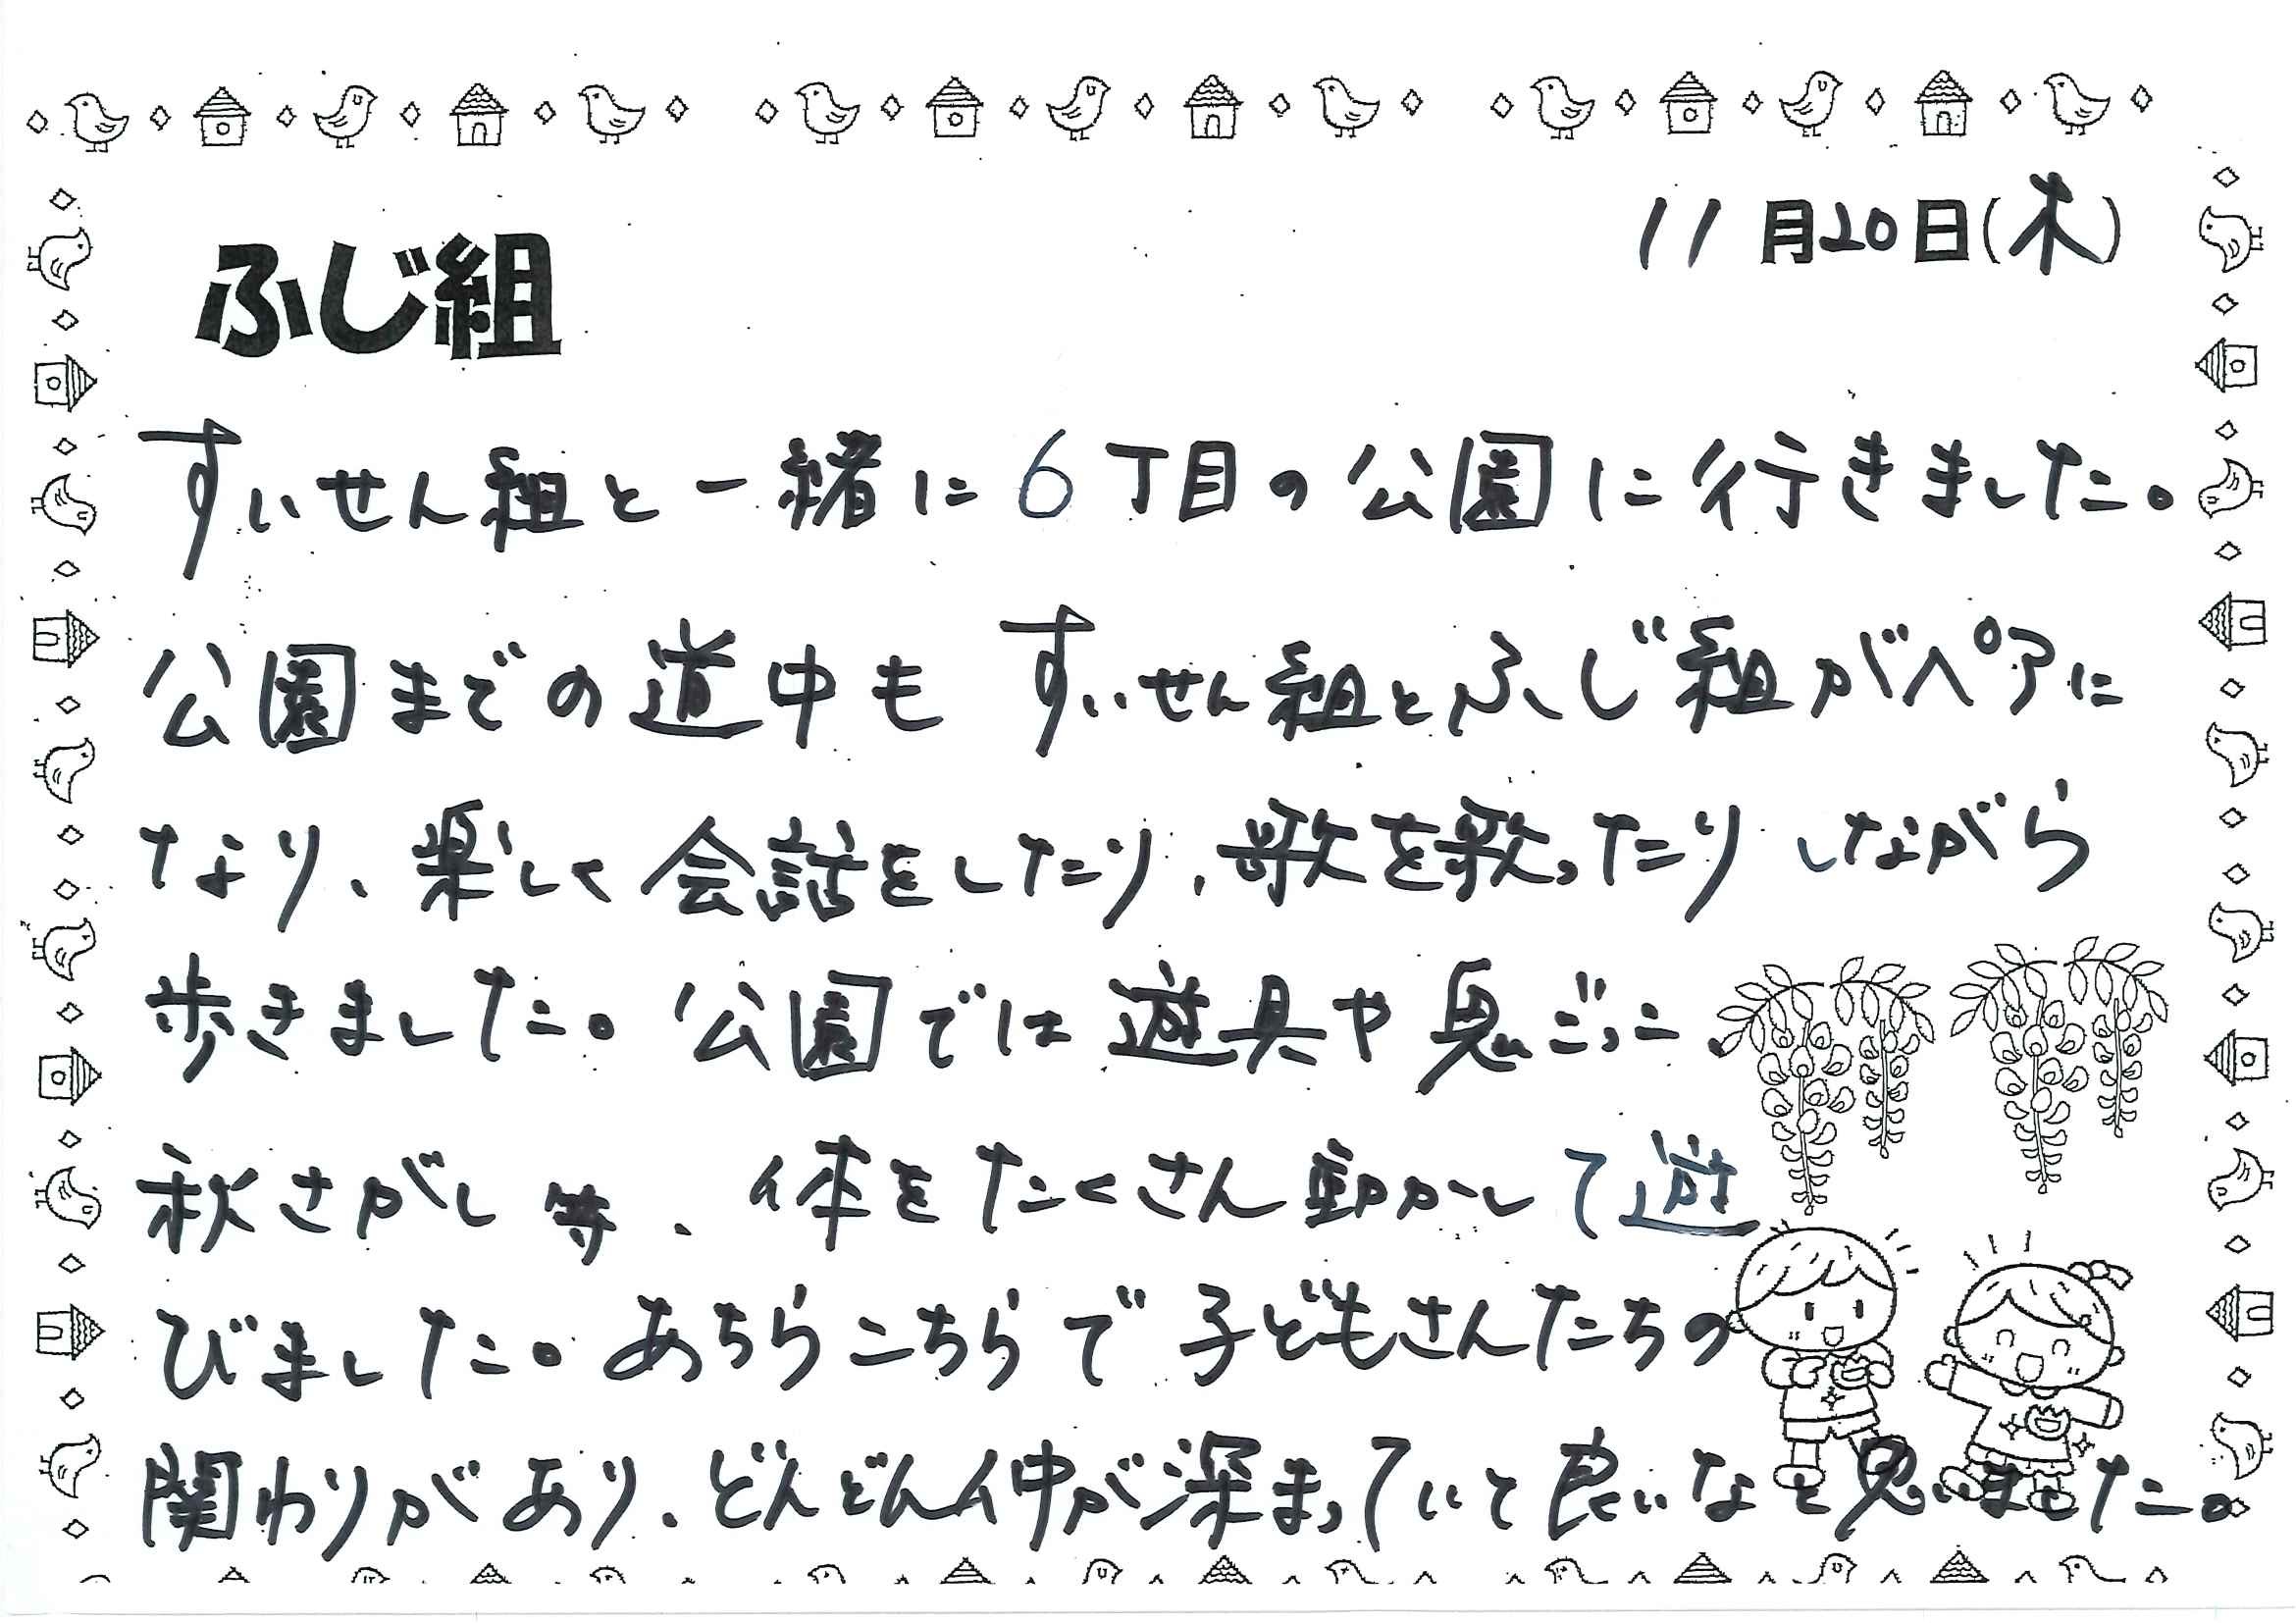 11月20日(木)
ふじ組
すいせん組と一緒に6丁目の公園に行きました。
公園までの道中もすいせん組とふじ組がペアに
なり、楽しく会話をしたり、歌を歌ったりしながら
歩きました。公園では遊具や鬼ごっこ、
秋さがし等、体をたくさん動かして遊
びました。あちらこちらで子どもさんたちの
関わりがあり、どんどん仲が深まっていて良いなと思いました。